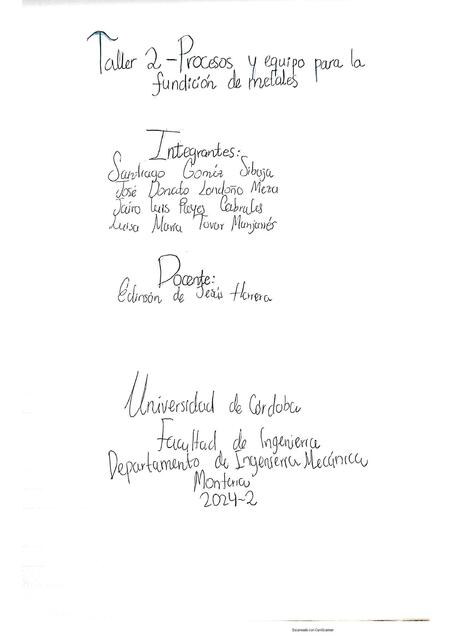 Taller 2 - Procesos y equipo para la
fundición de metales
Integrantes:
Santiago Goméz Sibaja
José Donato Londoño Meza
Jairo Luis Reyes Cabrales
Luisa María Tovar Manjarrés
Docente:
Edinson de Jesús Herrera
Universidad de Córdoba
Facultad de Ingeniería
Departamento de Ingeniería Mecánica
Montería
2024-2
Escaneado con CamScanner